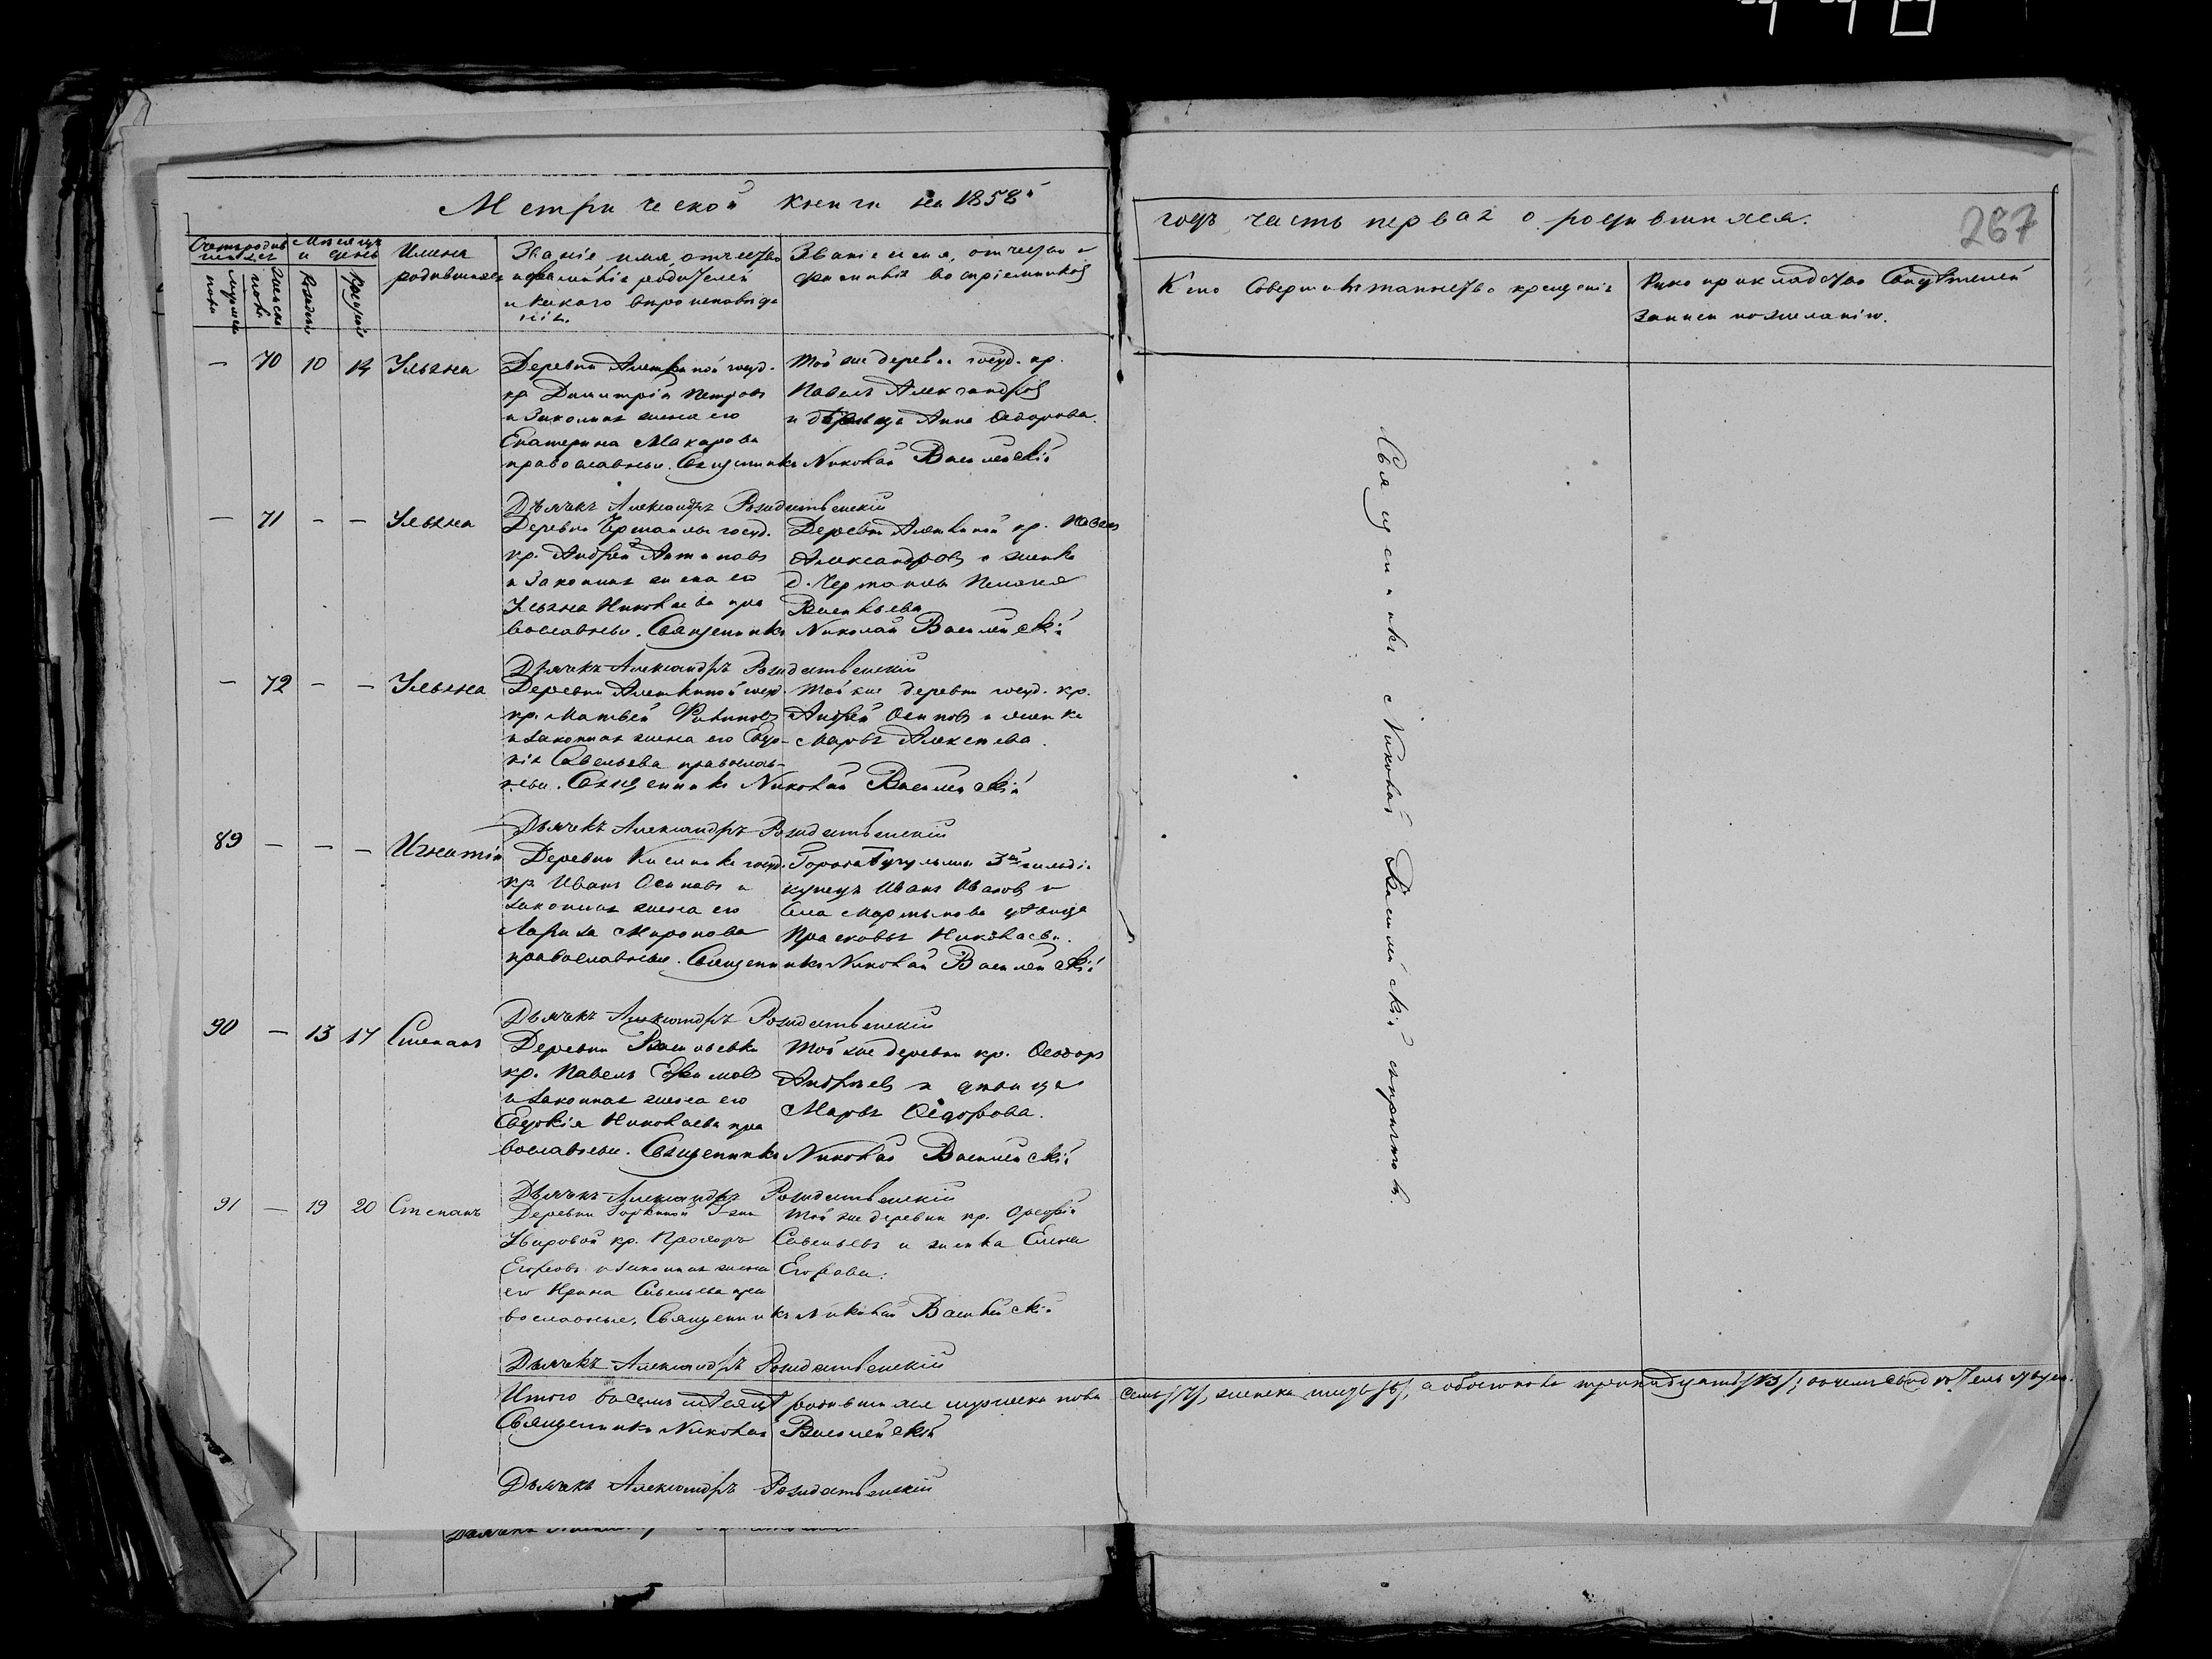 Метрической книги на 1858й
годъ часть первая о родившихся.
267
Счетъ родившихся
Мѣсяцъ и день
Имена родившихся
Званіе имя, отчество
и фамилія родителей
и какого вѣроисповѣда
нія.
Званіе имя, отчество и
фамилія воспріемниковъ
Кто совершалъ таинство крещенія
Рукоприкладство свидѣтелей
записи по желанію.
мужеска пола
женска пола
рожденія
крещенія
— 70 10 14 Ульяна
Деревни Алешкиной госуд.
кр. Димитрій Петровъ
и законная жена его
Екатерина Макарова
православные. Священникъ Николай Васильевскій
Той же деревни госуд. кр.
Павелъ Александровъ
и дѣвица Анна Ѳедорова.
Дьячекъ Александръ Рождественскій
— 71 - — Ульяна
Деревни госуд.
кр. Андрей Антиповъ
и законная жена его
Ульяна Николаева пра
вославные. Священникъ Николай Васильевскій
Деревни Алешкиной кр. Павелъ
Александровъ и женка
д.
Васильева
Дьячекъ Александръ Рождественскій
— 72 - — Ульяна
Деревни Алешкиной госуд.
кр. Матвей Филиповъ
и законная жена его Евдо-
кія Савельева православ-
ные. Священникъ Николай Васильевскій
Той же деревни госуд. кр.
Андрей Осиповъ и женка
Марѳа Алексѣева.
Дьячекъ Александръ Рождественскій
89 — — — Игнатій
Деревни госуд.
кр. Иванъ Осиповъ и
законная жена его
Лариса Миронова
православные. Священникъ Николай Васильевскій
Города Бугульмы 3й гильдіи
купецъ Иванъ Ивановъ и
села Мартынова дѣвица
Прасковья Николаева.
Дьячекъ Александръ Рождественскій
90 — 13 17 Степанъ
Деревни Васильевки
кр. Павелъ Ефимовъ
и законная жена его
Евдокія Николаева пра
вославные. Священникъ Николай Васильевскій
Той же деревни кр. Ѳеодоръ
Андреевъ и дѣвица
Марѳа Ѳедорова.
Дьячекъ Александръ Рождественскій
91 — 19 20 Степанъ
Деревни
кр. Прохоръ
Егоровъ и законная жена
его Ирина Савельева пра
вославные. Священникъ Николай Васильевскій
Той же деревни кр.
Савельевъ и женка Елена
Егорова.
Дьячекъ Александръ Рождественскій
Священникъ Николай Васильевскій съ причтомъ.
Итого восемь родившихся мужеска пола семь /7/, женска шесть /6/, а обоего пола тринадцать /13/; въ чемъ свидѣтельствуемъ.
Священникъ Николай Васильевскій
Дьячекъ Александръ Рождественскій